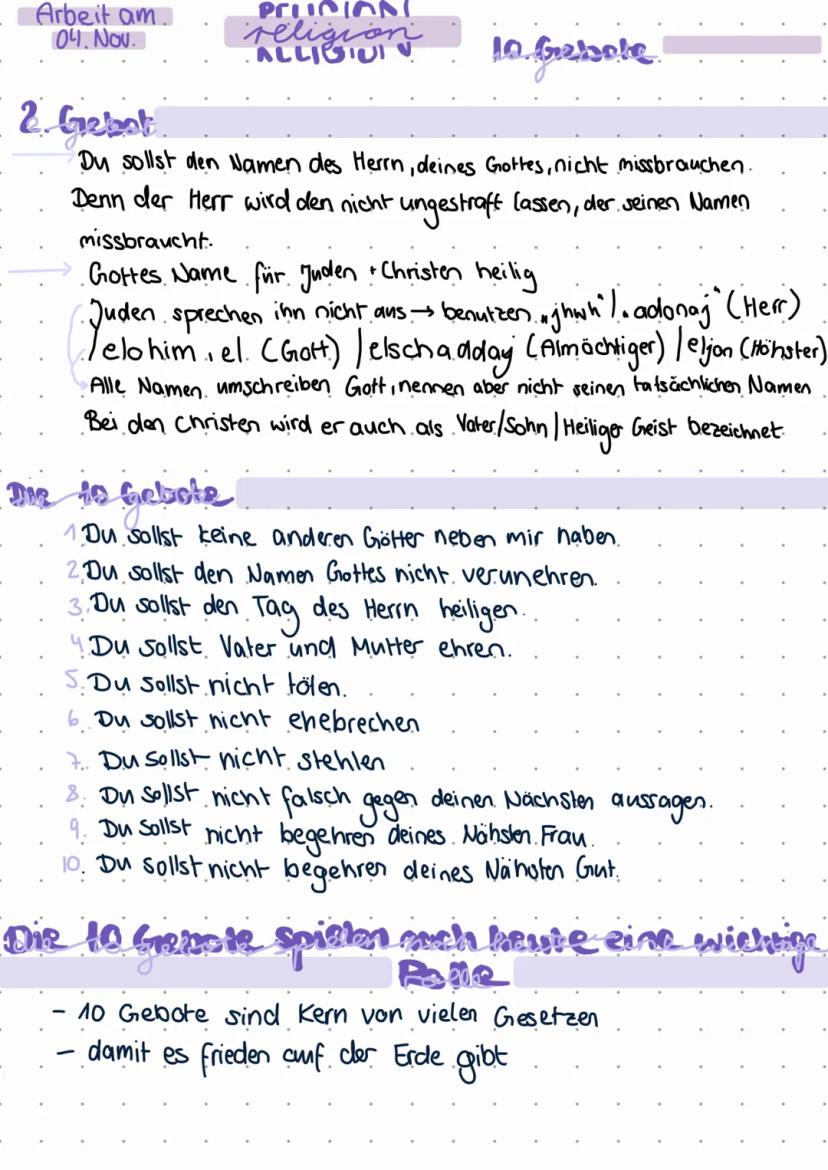 Arbeit am
04. Nov.
RELIGION
religion
RELIGION
10 Gebote
2. Gebot
Du sollst den Namen des Herrn, deines Gottes, nicht missbrauchen.
Denn der Herr wird den nicht ungestraft lassen, der seinen Namen
missbraucht.
→ Gottes Name für Juden + Christen heilig
Juden sprechen ihn nicht aus → benutzen „jhwh" / „adonaj" (Herr)
/ elohim, el (Gott) / elschadday (Almächtiger) / eljon (Höhster)
Alle Namen umschreiben Gott, nennen aber nicht seinen tatsächlichen Namen
Bei den Christen wird er auch als Vater/Sohn/Heiliger Geist bezeichnet
Die 10 Gebote
1 Du sollst keine anderen Götter neben mir haben.
2. Du sollst den Namen Gottes nicht verunehren.
3. Du sollst den Tag des Herrn heiligen.
4. Du sollst Vater und Mutter ehren.
5. Du sollst nicht töten.
6. Du sollst nicht ehebrechen
7. Du sollst nicht stehlen
8. Du sollst nicht falsch gegen deinen Nächsten aussagen.
9. Du sollst nicht begehren deines Nähsten Frau.
10. Du sollst nicht begehren deines Nähsten Gut.
Die 10 Gebote spielen auch heute eine wichtige
Rolle
- 10 Gebote sind Kern von vielen Gesetzen
- damit es frieden auf der Erde gibt